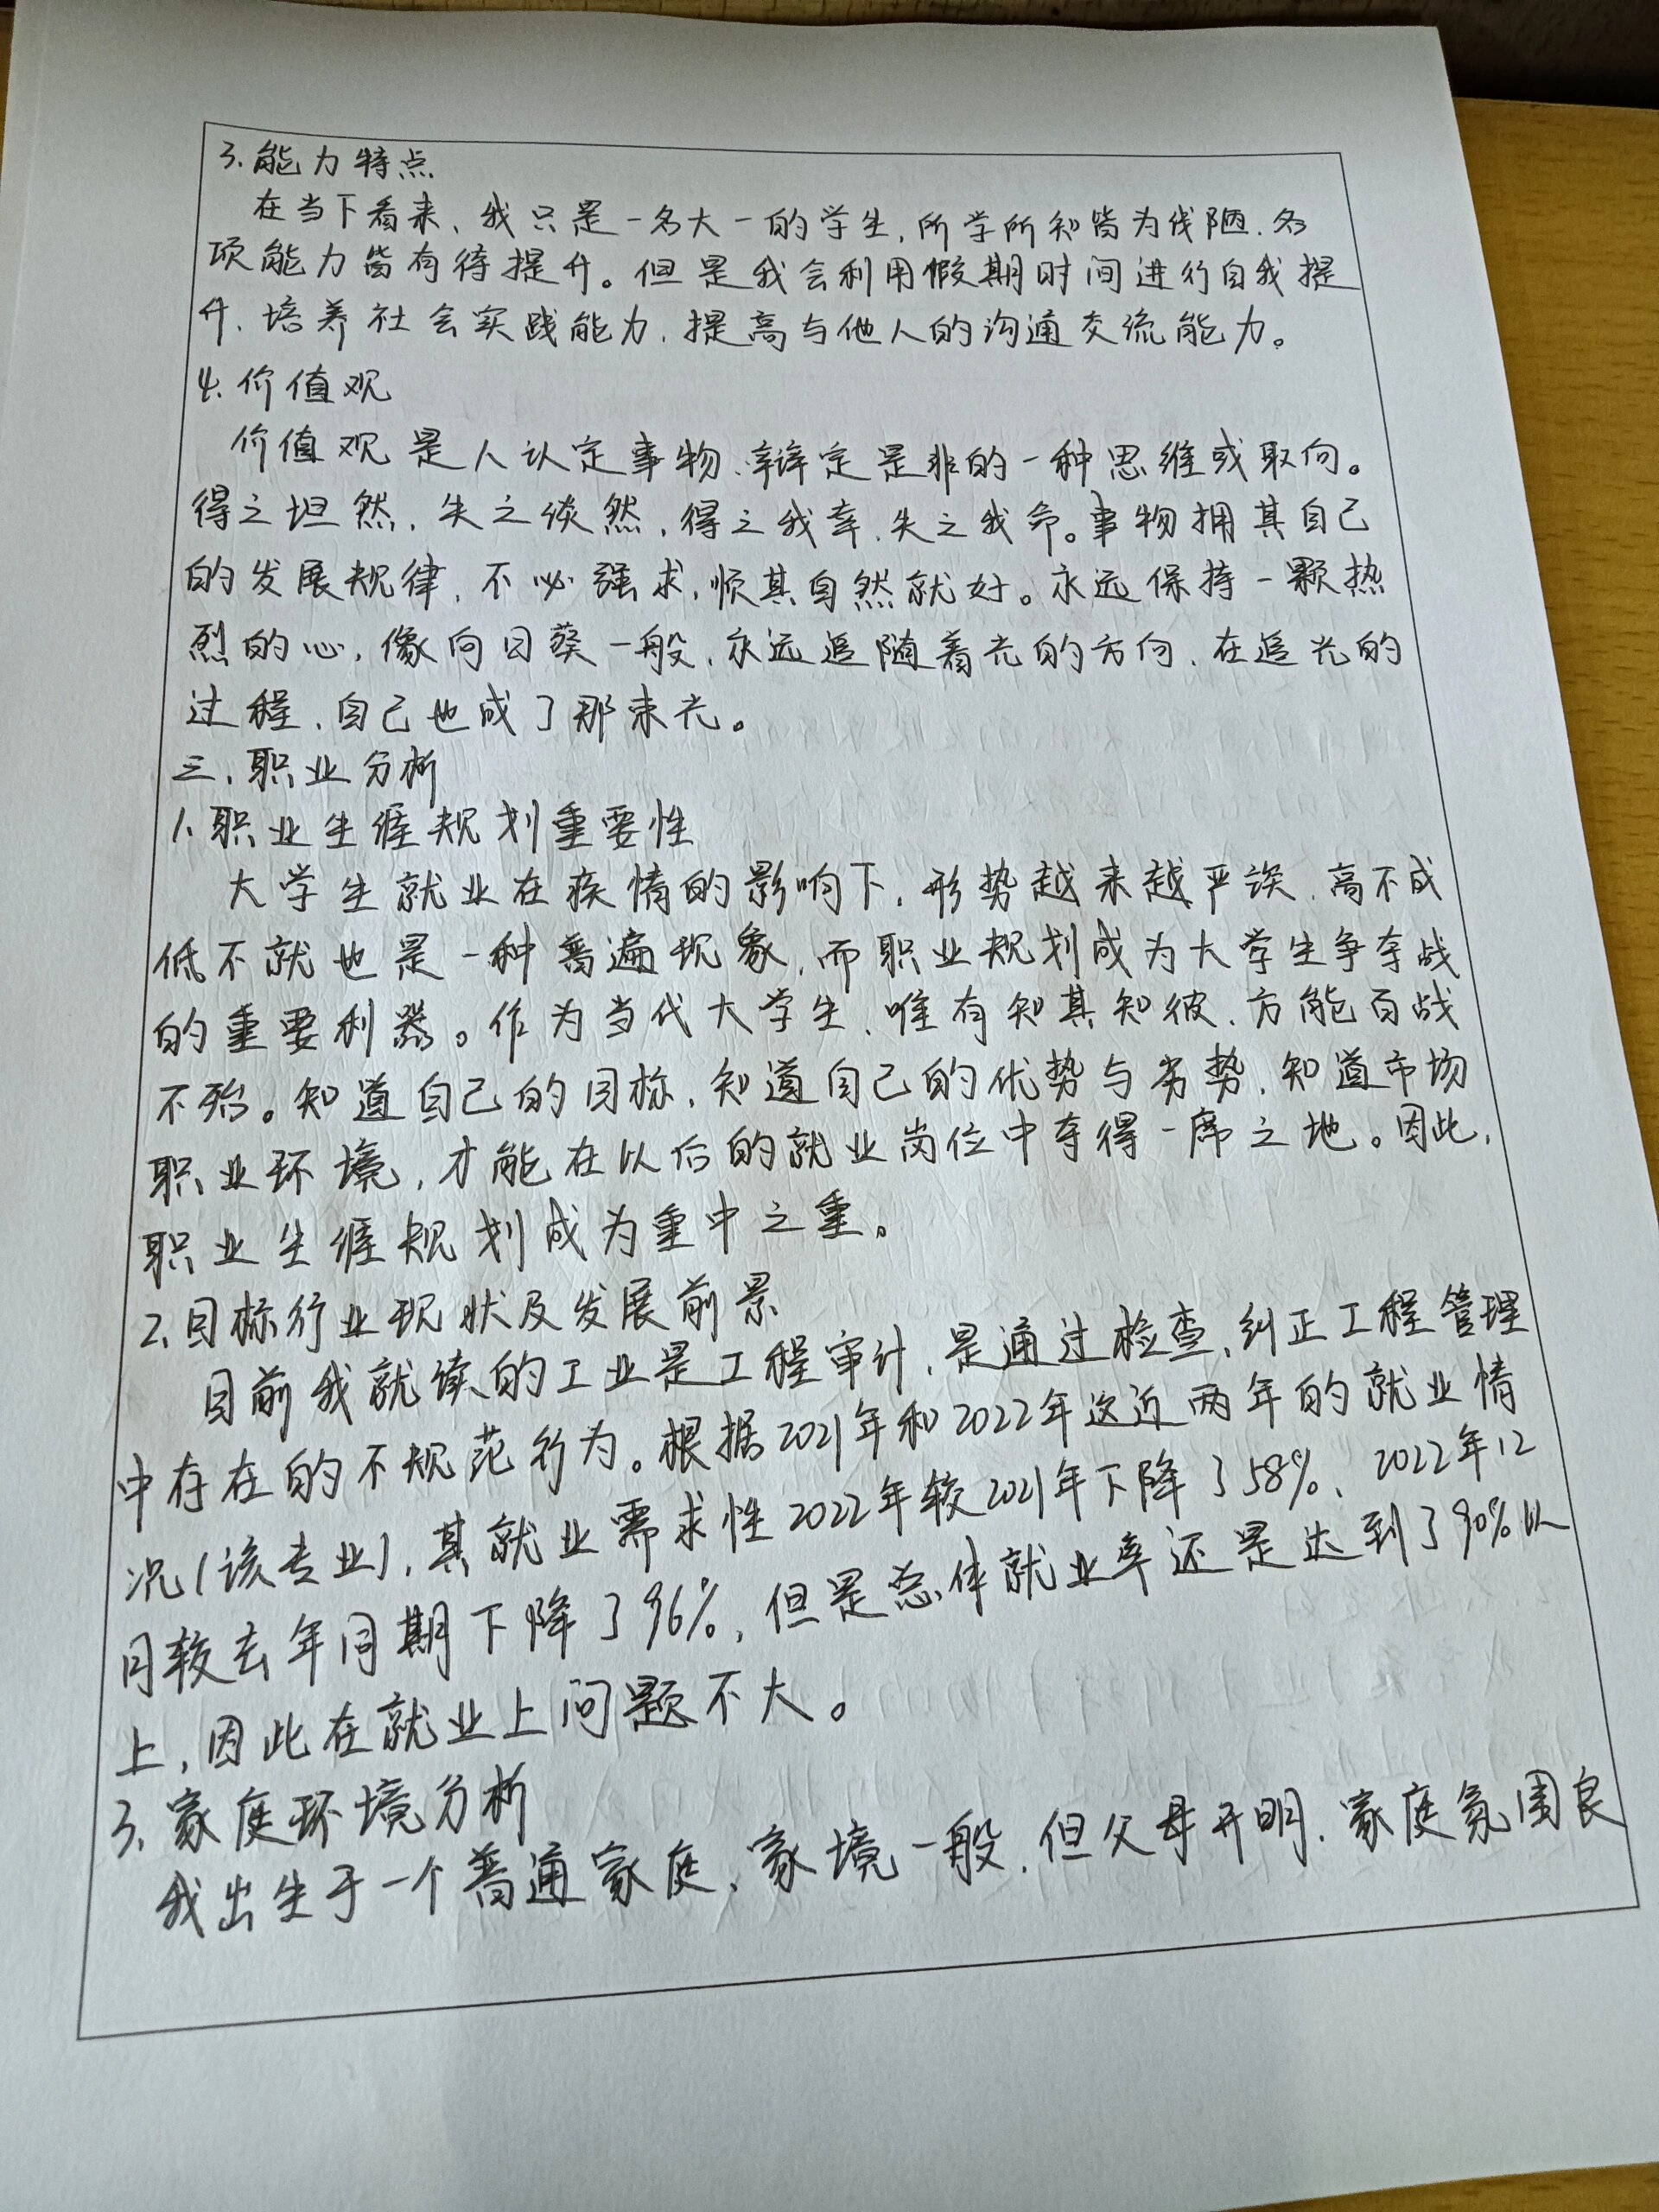 3.能力特点
在当下看来，我只是一名大一的学生，所学所知皆为浅陋，各
项能力皆有待提升。但是我会利用假期时间进行自我提
升，培养社会实践能力，提高与他人的沟通交流能力。
4.价值观
价值观是人认定事物、辩定是非的一种思维或取向。
得之坦然，失之淡然，得之我幸，失之我命。事物拥其自己
的发展规律，不必强求，顺其自然就好。永远保持一颗热
烈的心，像向日葵一般，永远追随着光的方向，在追光的
过程，自己也成了那束光。
三、职业分析
1、职业生涯规划重要性
大学生就业在疫情的影响下，形势越来越严峻，高不成
低不就也是一种普遍现象，而职业规划成为大学生争夺战
的重要利器。作为当代大学生，唯有知其知彼，方能百战
不殆。知道自己的目标，知道自己的优势与劣势，知道市场
职业环境，才能在以后的就业岗位中夺得一席之地。因此，
职业生涯规划成为重中之重。
2、目标行业现状及发展前景
目前我就读的工业是工程审计，是通过检查、纠正工程管理
中存在的不规范行为。根据2021年和2022年这近两年的就业情
况(该专业)，其就业需求性2022年较2021年下降了58%、2022年12
月较去年同期下降了96%，但是总体就业率还是达到了90%以
上，因此在就业上问题不大。
3、家庭环境分析
我出生于一个普通家庭，家境一般，但父母开明，家庭氛围良